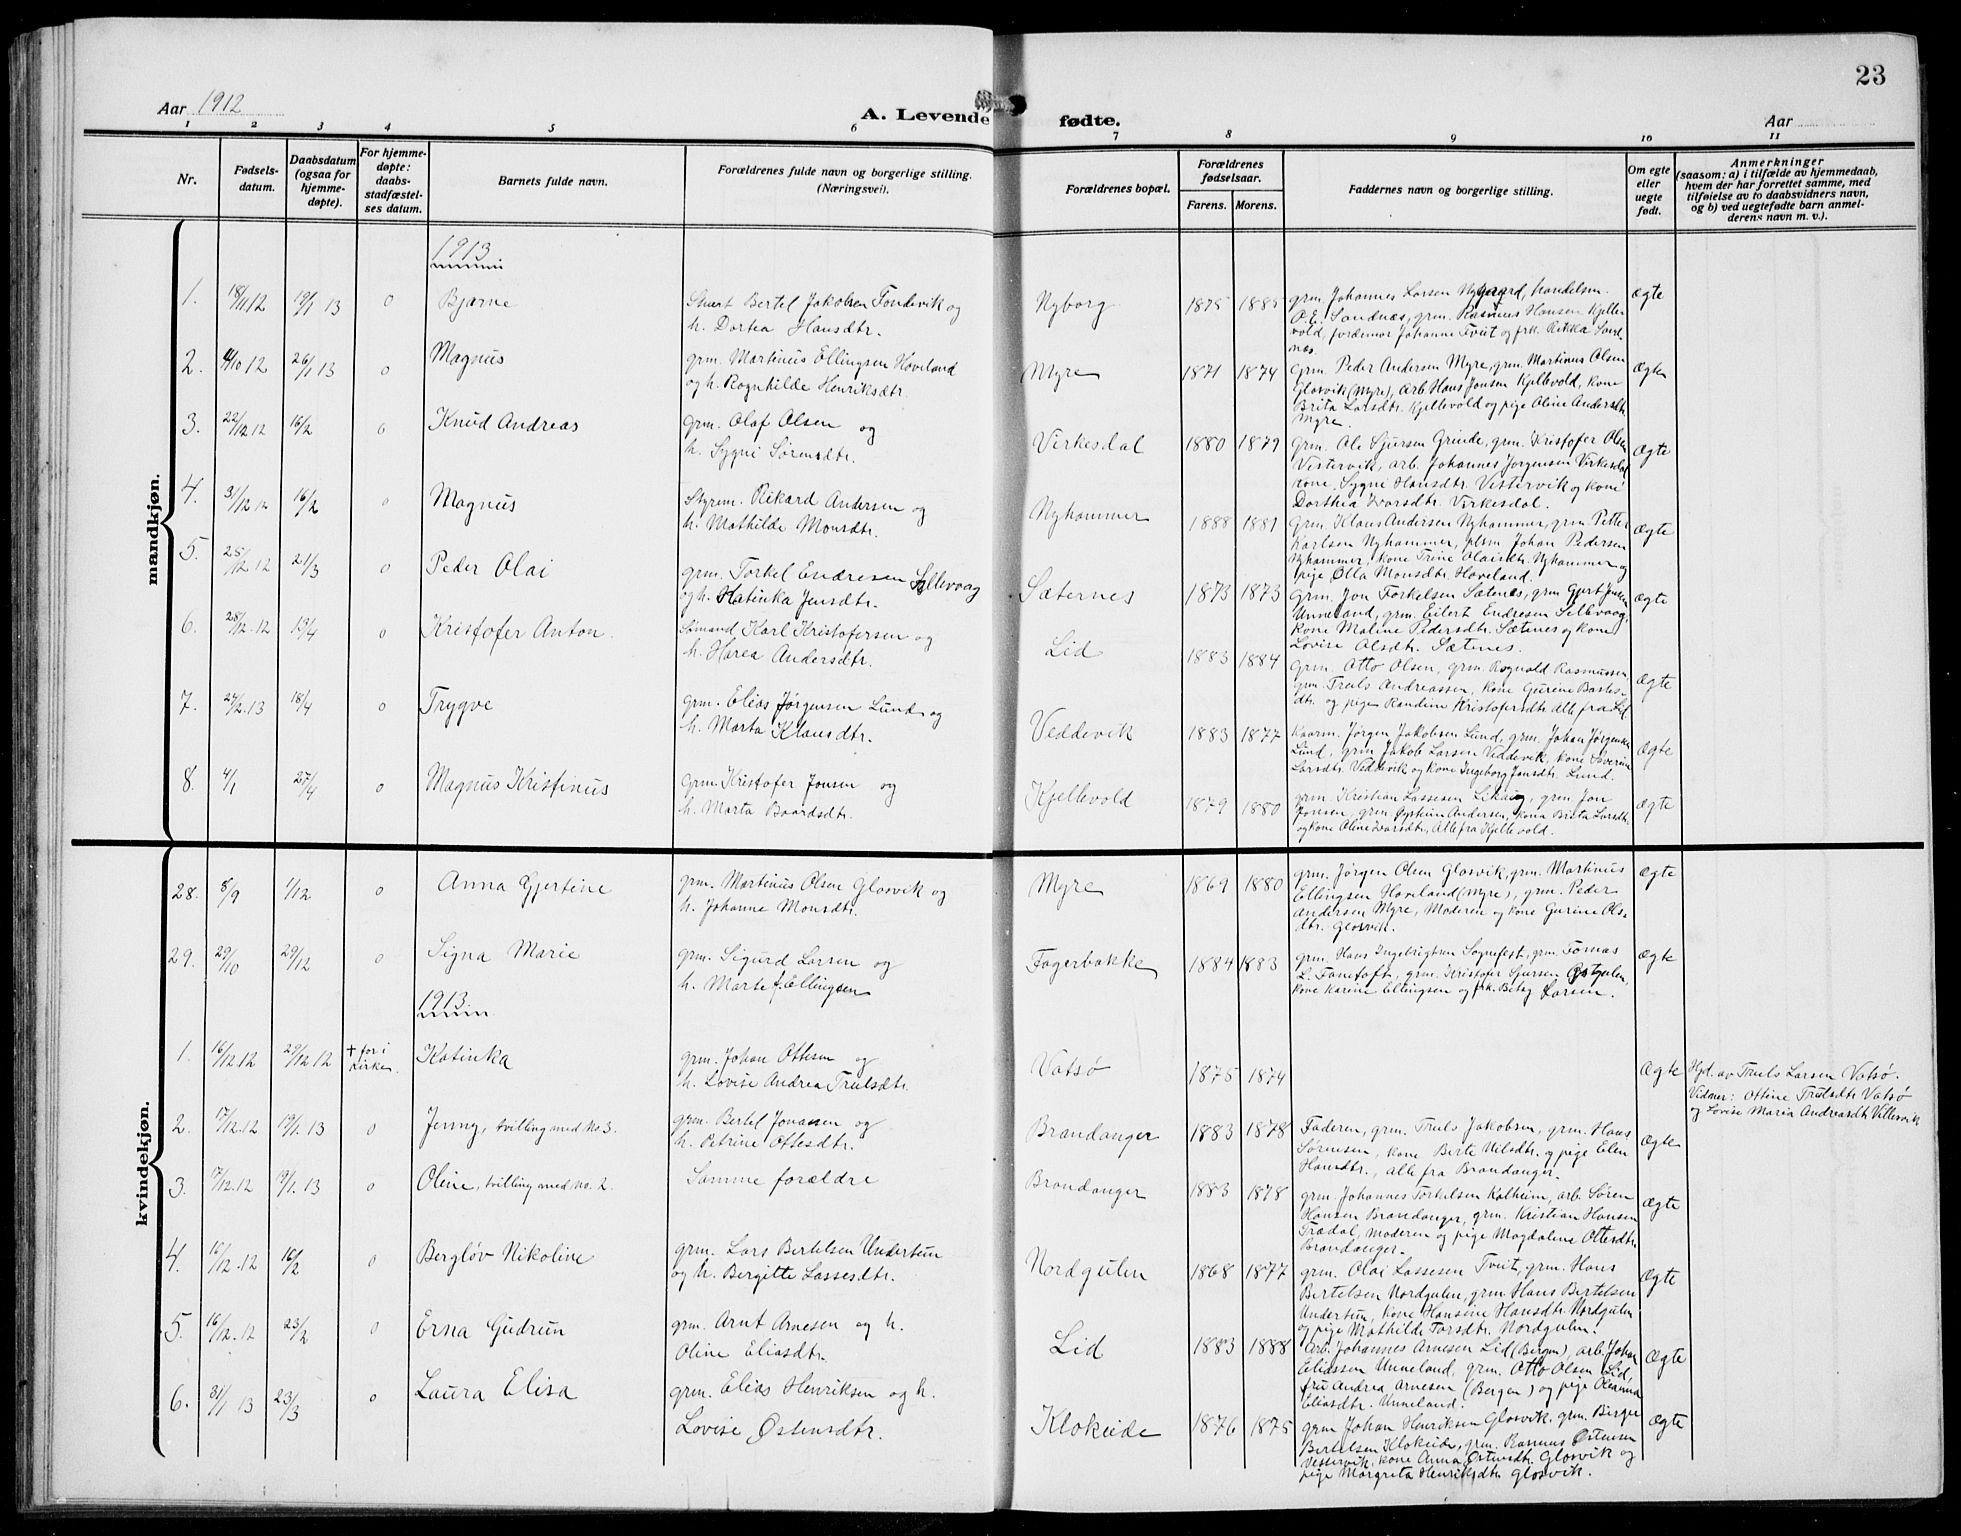 23
Aar 1912
A. Levende fødte.
Aar
1 2 3 4 5 6 7 8 9 10 11
Nr.
Fødsels-
datum.
Daabsdatum
(ogsaa for
hjemme-
døpte).
For hjemme-
døpte:
daabs-
stadfæstel-
ses datum.
Barnets fulde navn.
Forældrenes fulde navn og borgerlige stilling.
(Næringsvei).
Forældrenes bopæl.
Forældrenes
fødselsaar.
Farens. Morens.
Faddernes navn og borgerlige stilling.
Om egte
eller
uegte
født.
Anmerkninger
(saasom: a) i tilfælde av hjemmedaab,
hvem der har forrettet samme, med
tilføielse av to daabsvidners navn,
og b) ved uegtefødte barn anmel-
derens navn m. v.).
mandkjøn.
1913
1. 18/11 12 19/1 13 0 Bjarne
Bertel Jakobsen Tondevik og
h. Dortea Hansdtr.
Nyborg 1875 1885
grm. Johannes Larsen Nygaard, handelsm.
P.E. Sandnæs, grm. Rasmus Hansen Kjelle-
vold, jordemor Johanne Tveit og frk. Rikka Sand-
næs.
Ægte
2. 11/10 12 26/1 13 0 Magnus
grm. Martinus Ellingsen Hoveland
og h. Ragnhilde Henriksdtr.
Myre 1871 1874
Grm. Peder Andersen Myre, grm. Martinus Olsen
Glosvik (Myre), arb. Hans Jonsen Kjellevold, kone
Brita Larsdtr. Kjellevold og pige Oline Andersdtr.
Myre.
Ægte
3. 22/12 12 16/2 0 Knud Andreas
grm. Olaf Olsen og
h. Sygni Sørensdtr.
Virkesdal 1880 1879
Grm. Ole Sjursen Grinde, grm. Kristofer Olsen
Vestervik, arb. Johannes Jørgensen Virkesdal
kone Sygni Hansdtr. Vestervik og kone
Dorthea Ivarsdtr. Virkesdal.
Ægte
4. 31/12 12 16/2 0 Magnus
Styrm. Rikard Andersen og
h. Mathilde Monsdtr.
Nyhammer 1888 1881
Grm. Klaus Andersen Nyhammer, grm. Petter
Karlsen Nyhammer, plsm. Johan Pedersen
Nyhammer, kone Trine Olaisdtr. Nyhammer og
pige Olla Monsdtr. Hoveland.
Ægte
5. 25/12 12 21/3 0 Peder Olai
grm. Torkel Endresen Sellevaag
og h. Katinka Jensdtr.
Sæternes 1873 1873
Grm. Jon Torkelsen Sætenes, grm Gurt Jensen
Unneland, grm. Eilert Endresen Sellevaag,
kone Maline Pedersdtr. Sætenes og kone
Lovise Olsdtr. Sætenes.
Ægte
6. 28/12. 12 19/4 0 Kristofer Anton.
Sømand Karl Kristofersen og
h. Harea Andersdtr.
Lid 1883 1884
Grm. Otto Olsen, grm. Ragnvald Rasmussen,
grm. Truls Andreassen, kone Gurine Bastes-
dtr. og pige Randine Kristofersdtr. alle fra Lid.
Ægte
7. 24/2. 13 18/4 0 Trygve
grm. Elias Jørgensen Lund og
h. Marta Klausdtr.
Veddevik 1883 1877
Kaarm. Jørgen Jakobsen Lund, grm. Johan Jørgensen
Lund, grm Jakob Larsen Veddevik, kone Severine
Larsdtr. Veddevik og kone Ingeborg Jonsdtr. Lund.
Ægte
8. 4/1 27/4 0 Magnus Kristinus
Grm. Kristofer Jonsen og
h. Marta Baardsdtr.
Kjellevold 1879 1880
grm. Kristian Lassesen Likaug, grm. Jon
Jonsen, grm. Øystein Andersen, kona Brita Larsdtr.
og kone Oline Ivarsdtr, Alle fra Kjellevold.
Ægte
kvindekjøn.
28. 8/9 1/12 0 Anna Gjertine
grm. Martinus Olsen Glosvik og
h. Johanne Monsdtr.
Myre 1869 1880
grm. Jørgen Olsen Glosvik, grm. Martinus
Ellingsen Hoveland (Myre), grm. Peder
Andersen Myre, Moderen og kone Gurine Ols-
dtr. Glosvik.
Ægte
29. 29/10 29/12 0 Signa Marie
grm. Sigurd Larsen og
h. Marte f. Ellingsen
Fagerbakke 1884 1883
grm. Hans Ingebrigtsen Sognefest, grm. Tomas
L. Tanetoft, grm. Kristofer Sjursen Østgulen,
kone Karine Ellingsen og frk. Betsy Larsen.
Ægte
1913.
1. 16/12. 12 29/12 12 † før i
kirken. Katinka
grm. Johan Ottesen og
h. Lovise Andrea Trulsdtr.
Vatsø 1875 1874
Ægte
Hjd. av Truls Larsen Vatsø.
Vidner: Oline Trulsdtr. Vatsø
og Lovise Maria Andreasdtr. Villevik
2. 17/12. 12 19/1. 13 0 Jenny, tvilling med No. 3.
grm. Bertel Jonassen og
h. Petrine Ottesdtr.
Brandanger 1883 1878
Faderen, grm. Truls Jakobsen, grm. Hans
Sørensen, kone Berte Nilsdtr. og pige Elen
Hansdtr., alle fra Brandanger.
Ægte
3. 17/12. 12 19/1. 13 0 Oline, tvilling med No. 2.
Samme forældre
Brandanger 1883 1878
grm. Johannes Torkelsen Kalheim, arb. Søren
Hansen Brandanger, grm. Kristian Hansen
Trædal, Moderen og pige Magdalene Ottesdtr.
Brandanger.
Ægte
4. 10/12. 12 16/2 0 Bergløv Nikoline
grm. Lars Bertelsen Undertun
og h. Bergitte Lassesdtr.
Nordgulen 1868 1877
grm. Olai Lassesen Tveit, grm. Hans
Bertelsen Nordgulen, grm Hans Bertelsen
Undertun, kone Hansine Hansdtr. Nordgulen
og pige Mathilde Torsdtr. Nordgulen.
Ægte
5. 16/12. 12 23/2 0 Erna Gudrun
grm. Arnt Arnesen og h.
Oline Eliasdtr.
Lid 1883 1888
Arb. Johannes Arnesen Lid (Bergen), arb. Johan
Eliassen Unneland, grm. Otto Olsen Lid,
fru Andrea Arnesen (Bergen) og pige Oleanna
Eliasdtr. Unneland.
Ægte
6. 31/1 13 23/3 0 Laura Elisa
grm. Elias Henriksen og h.
Lovise Østensdtr.
Klokeide 1876 1875
grm Johan Henriksen Glosvik. grm. Birger
Bertelsen Klokeide, grm. Rasmus Østensen
Vestervik, kone Anna Østensdtr. Glosvik og
pige Margreta Henriksdtr Glosvik.
Ægte